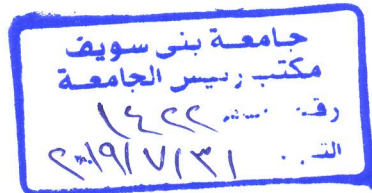 جامعة بنى سويف
مكتب رئيس الجامعة
رقم ١٤٢٢
٢٠١٩/٧/٣١